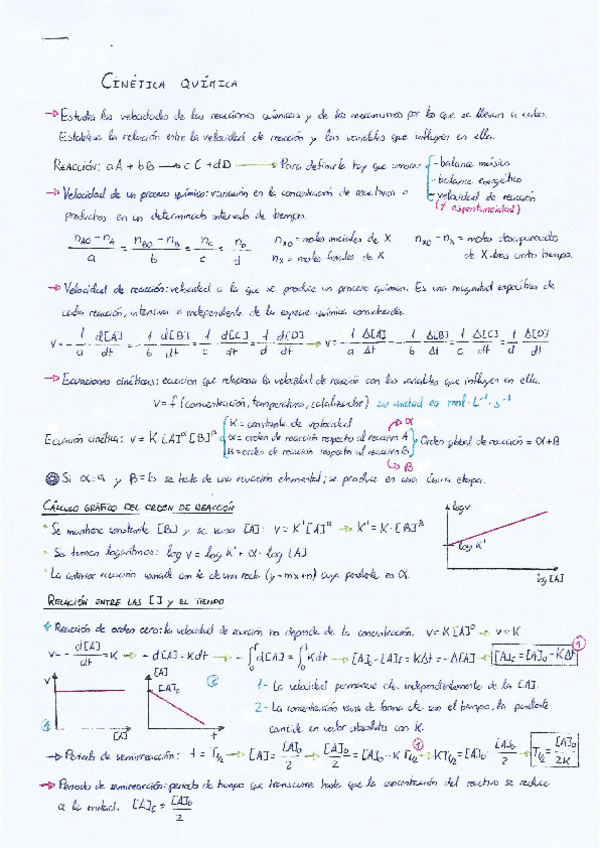 CINÉTICA QUÍMICA
→ Estudia las velocidades de las reacciones químicas y de los mecanismos por lo que se llevan a cabo.
Establece la relación entre la velocidad de reacción y las variables que influyen en ella.
REACCIÓN: aA + bB → cC + dD → Para definirla hay que conocer: - balance másico
- balance energético
- velocidad de reacción
(≠ espontaneidad)
→ Velocidad de un proceso químico: variación en la concentración de reactivos o
productos en un determinado intervalo de tiempo.
(nA0 - nA)/a = (nB0 - nB)/b = nC/c = nD/d
nX0 = moles iniciales de X
nX = moles finales de X
nX0 - nX = moles desaparecidos
de X tras cierto tiempo.
→ Velocidad de reacción: velocidad a la que se produce un proceso químico. Es una magnitud específica de
cada reacción, intensiva e independiente de la especie química considerada.
v = - 1/a · d[A]/dt = - 1/b · d[B]/dt = 1/c · d[C]/dt = 1/d · d[D]/dt → v = - 1/a Δ[A]/Δt = - 1/b Δ[B]/Δt = 1/c Δ[C]/Δt = 1/d Δ[D]/Δt
→ Ecuaciones cinéticas: ecuación que relaciona la velocidad de reacción con las variables que influyen en ella.
v = f(concentración, temperatura, catalizador) su unidad es mol·L⁻¹·s⁻¹
Ecuación cinética: v = K [A]^α [B]^β
K = constante de velocidad
α = orden de reacción respecto al reactivo A → α
β = orden de reacción respecto al reactivo B → β
Orden global de reacción = α + β
Si α = a y β = b se trata de una reacción elemental; se produce en una única etapa.
CÁLCULO GRÁFICO DEL ORDEN DE REACCIÓN
• Se mantiene constante [B] y se varía [A]: v = K'[A]^α → K' = K·[B]^β
• Se toman logaritmos: log v = log K' + α · log [A]
• La anterior ecuación coincide con la de una recta (y = mx + n) cuya pendiente es α.
log v
log K'
log [A]
RELACIÓN ENTRE LAS [ ] Y EL TIEMPO
Reacción de orden cero: la velocidad de reacción no depende de la concentración. v = K[A]⁰ → v = K
v = - d[A]/dt = K → - d[A] = K dt → - ∫ d[A] = ∫ K dt → [A]₀ - [A]t = KΔt = - Δ[A] → [A]t = [A]₀ - KΔt ①
v
[A]
①
[A]
[A]₀
t
②
1 - La velocidad permanece cte. independientemente de la [A].
2 - La concentración varía de forma cte. con el tiempo, la pendiente
coincide en valor absoluto con K.
→ Periodo de semirreacción: t = T1/2 → [A] = [A]₀/2 → [A]₀/2 = [A]₀ - K T1/2 ① → KT1/2 = [A]₀ - [A]₀/2 → T1/2 = [A]₀/2K
→ Periodo de semirreacción: periodo de tiempo que transcurre hasta que la concentración del reactivo se reduce
a la mitad. [A]t = [A]₀/2